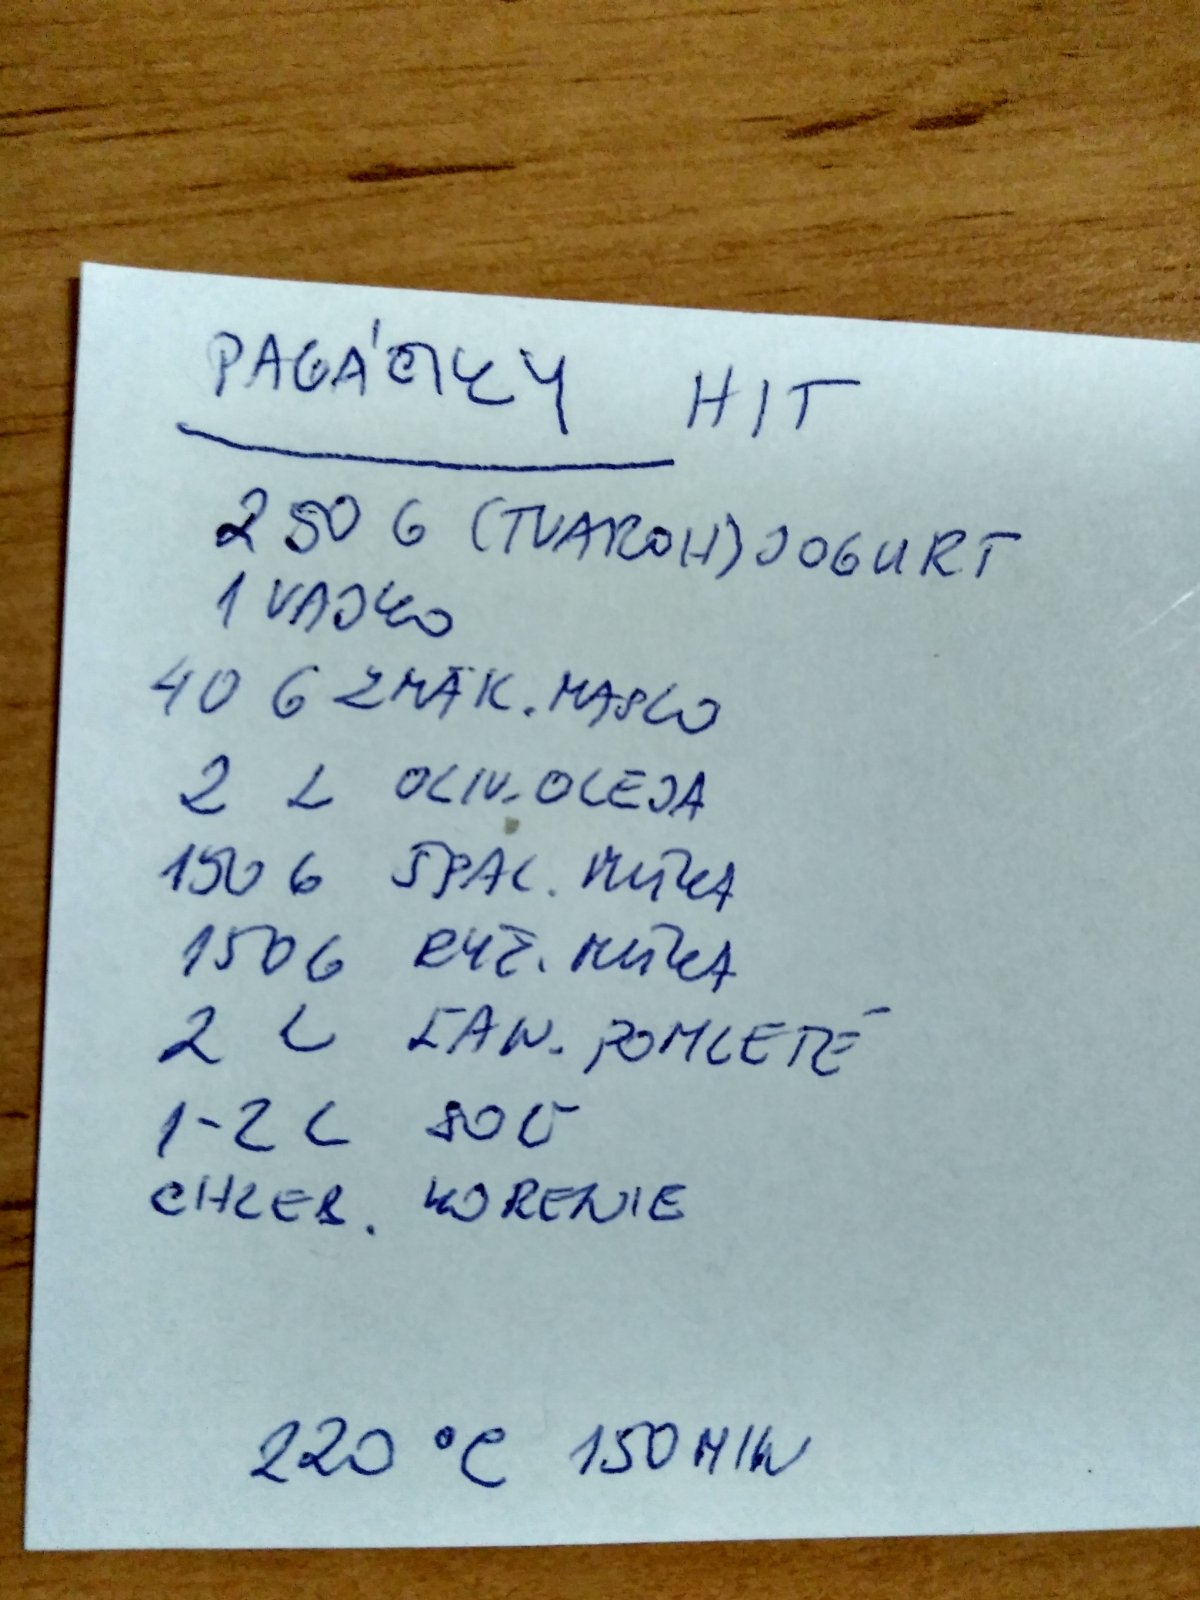 PAGÁČIKY HIT
250 G (TVAROH) JOGURT
1 VAJKO
40 G ZMÄK. MASLO
2 L OLIV. OLEJA
150 G ŠPAL. MÚKA
150 G RYŽ. MÚKA
2 L ĽAN. POMLETÉ
1-2 L SOĽ
CHLEB. KORENIE
220 °C 150 MIN